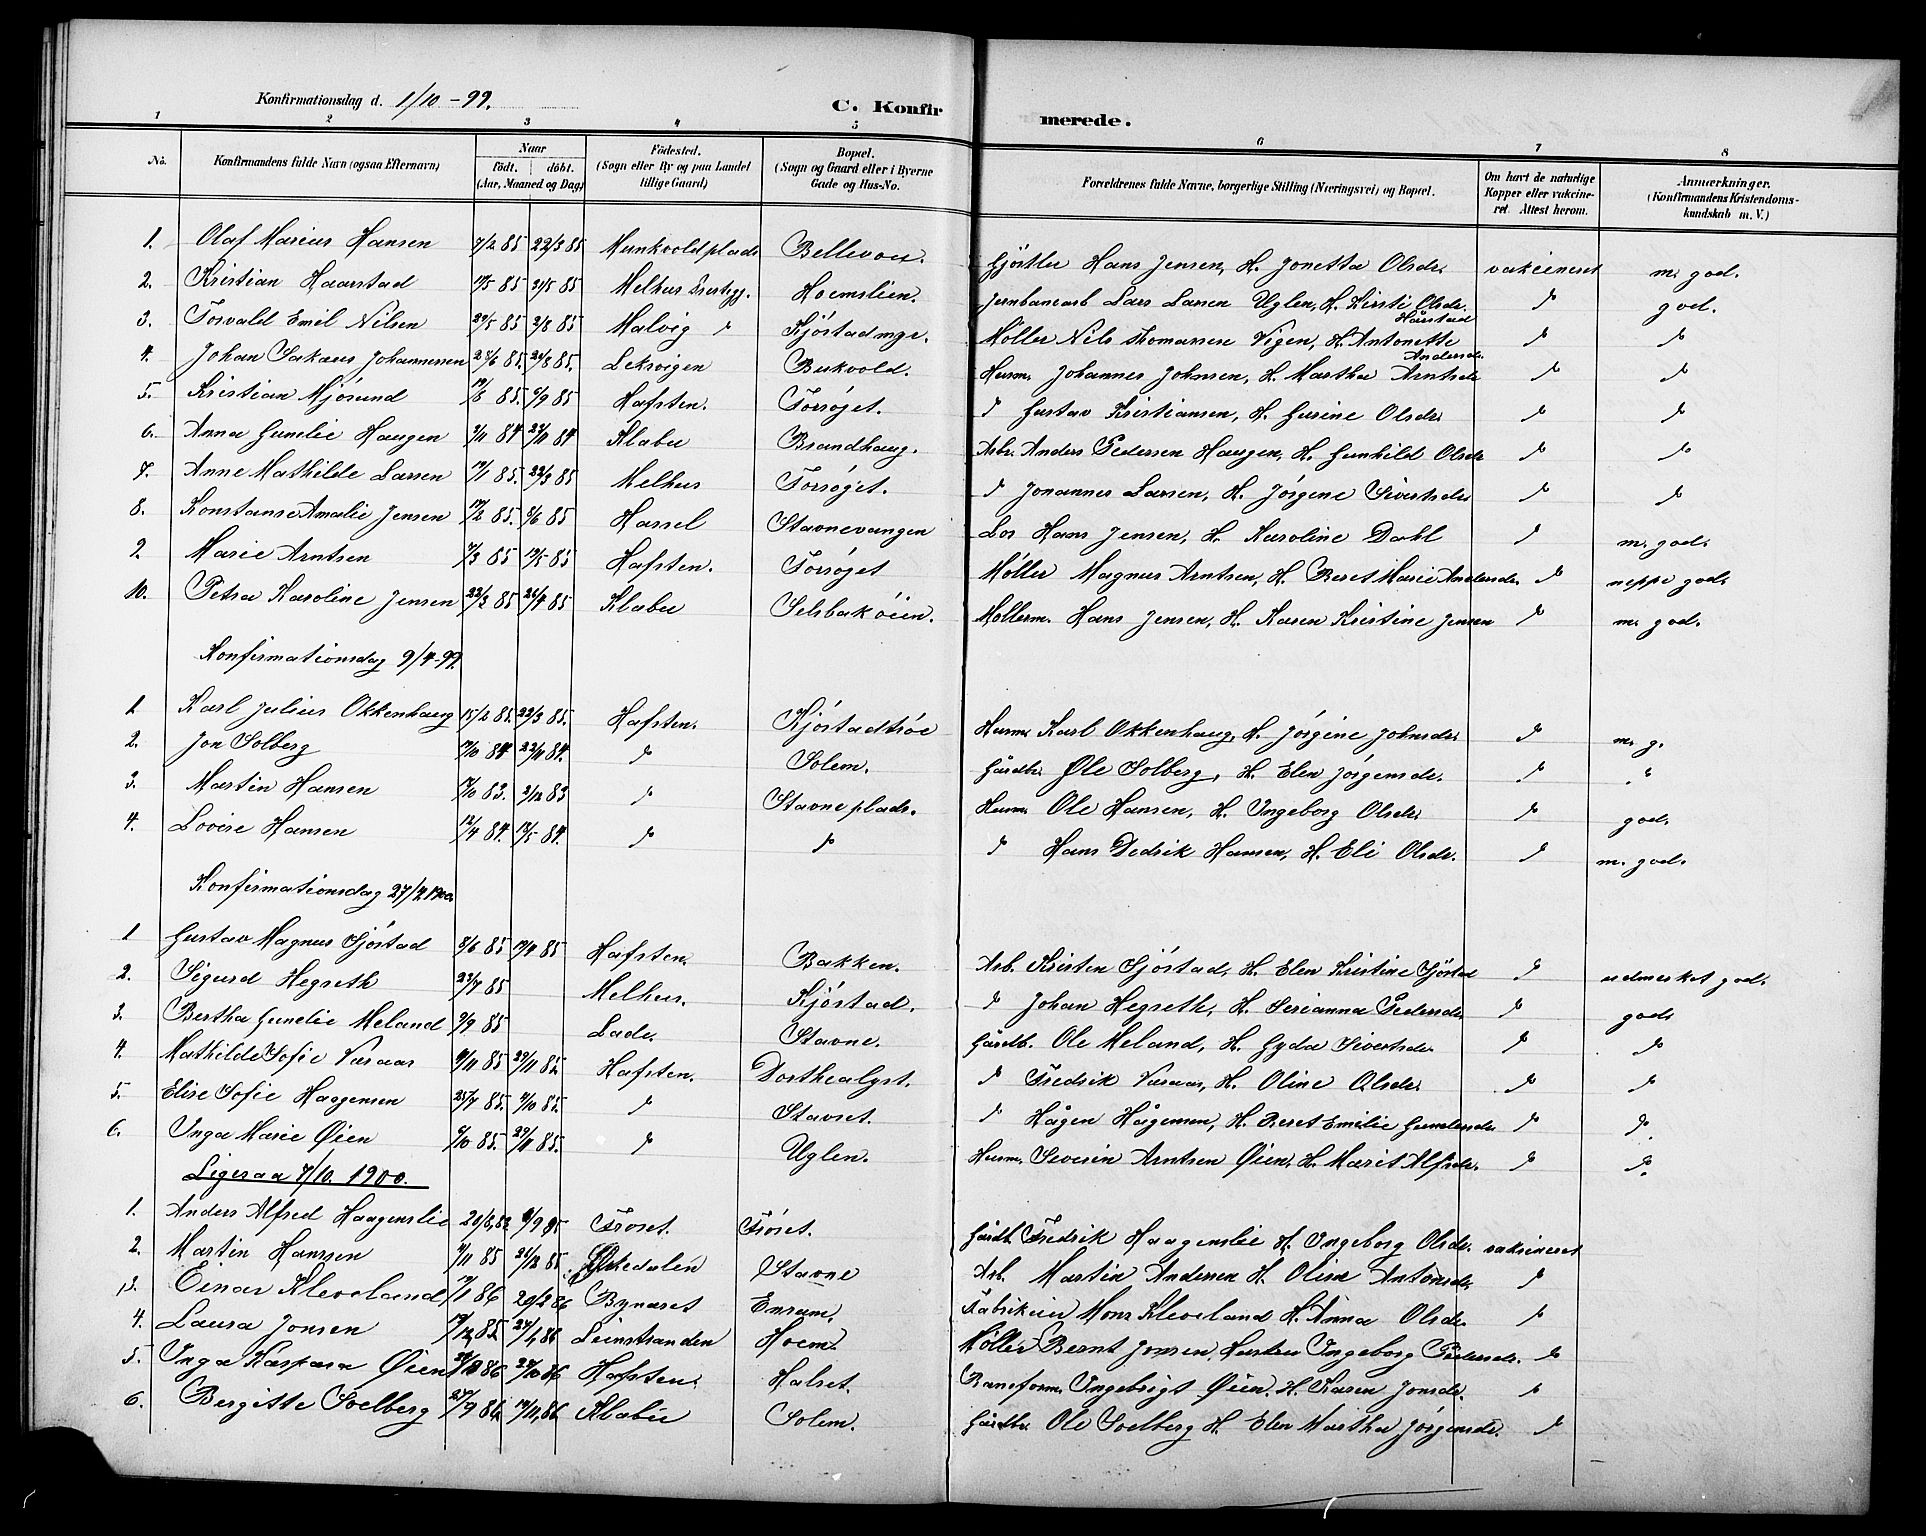 Konfirmationsdag d. 1/10 - 99.
C. Konfirmerede.
1 2 3 4 5 6 7 8
No.
Konfirmandens fulde Navn (ogsaa Efternavn)
Naar
født. døbt.
(Aar, Maaned og Dag)
Fødested.
(Sogn eller By og paa Landet tillige Gaard)
Bopæl.
(Sogn og Gaard eller i Byerne Gade og Hus-No.
Forældrenes fulde Navne, borgerlige Stilling (Næringsvei) og Bopæl.
Om havt de naturlige Kopper eller vakcineret. Attest herom.
Anmærkninger.
(Konfirmandens Kristendomskundskab m. V.)
1. Olaf Marius Hansen 7/2 85 22/3 85 Munkvoldplads Bellevou. Gjørtler Hans Jensen, H. Jonetta Olsdr. vakcineret m. god.
2. Kristian Haarstad 85 85 Melhus Hoemslien. Jernbanearb Lars Larsen Uglen, H. Kirsti Olsdr. Hårstad " god.
3. Torvald Emil Nilsen 29/5 85 2/8 85 Malvig " Kjøstadmyr. Møller Nils Thomassen Vigen, H. Antonette Andersdr. " "
4. Johan Sakaus Johannessen 85. 85. Leksvigen Bukvold. Husm. Johannes Johnsen, H. Martha Arntsdr " "
5. Kristian Mjøsund 85. 6/9 85 Hafsten. Forsøget. " Gustav Kristiansen, H. Gurine Olsdr. " "
6. Anna Gunelie Haugen 2/11 84 23/11 84 Klæbu Brandhaug. Arb. Anders Pedersen Haugen, H. Gunhild Olsdr " "
7. Anne Mathilde Larsen 19/1 85. 22/3 85 Melhus Forsøget. " Johannes Larsen, H. Jørgine Sivertsdr " "
8. Konstanse Amalie Jensen 17/2 85. 85 Hassel Stavnevangen Los Hans Jensen, H. Karoline Dahl " m. god.
9. Marie Arntsen 7/3 85 17/5 85 Hafsten. Forsøget Møller Magnus Arntsen, H. Beret Marie Andersdr. " neppe god.
10. Petra Karoline Jensen 22/2 85 26/4 85 Klæbu Selsbakøien. Møllerm. Hans Jensen, H. Karen Kristine Jensen " m. god.
Konfirmationsdag 9/4-99.
1 Karl Julius Okkenhaug 15/2 85. 22/3 85. Hafsten. Kjøstadtrøe Husm. Karl Okkenhaug, H. Jørgine Johnsdr. " m. g.
2. Jon Solberg 84 22/11 84. " Solem. Gårdbr. Ole Solberg, H. Elen Jørgensdr. " "
3. Martin Hansen 83. 2/12 83 " Stavneplads. Husm. Ole Hansen, H. Ingeborg Olsdr. " god.
4. Lovise Hansen 12/4 84. 84. " " " Hans Dedrik Hansen, H. Eli Olsdr. " m. god.
Konfirmationsdag 27/4 1900.
1 Gustav Magnus Sjøstad 85 85 Hafsten. Bakken. Arb. Kristen Sjøstad, H. Elen Kristine Sjøstad " udmerket god.
2. Sigurd Hegseth 23/7 85 Melhus. Kjøstad. " Johan Hegseth, H. Serianna Pedersdr. " god
3. Bertha Gunelie Meland 9/9 85 Lade. Stavne. Gårdb. Ole Meland, H. Gyda Sivertsdr. " "
4. Mathilde Sofie Væraas 85 29/11 85. Hafsten. Dorthealyst. " Fredrik Væraas, H. Oline Olsdr. " "
5. Elise Sofie Haagensen 25/7 85. 4/10 85. " Stavset. " Hågen Hågensen, H. Beret Emilie Gundersdr " "
6. Inga Marie Øien 6/10 85. 29/11 85. " Uglen. Husm. Severin Arntsen Øien, H. Marit Alfsdr. " "
Ligesaa 7/10. 1900.
1. Anders Alfred Haagenslie 6/9 85 Trøset. Trøset. Gårdb. Fredrik Haagenslie H. Ingeborg Olsdr. vakcineret
2. Martin Hanssen 85 26/12 85. Ørkedalen Stavne Arb. Martin Andersen H. Oline Antonsdr. "
3. Einar Kleveland 86 20/2 86 Bynæset Enrum, Fabrikeier Mons Kleveland H. Anna Olsdr. "
4. Laura Jonsen 85. 24/4 86 Leinstranden Hoem. Møller Bernt Jonsen, Hustru Ingeborg Pedersdr. "
5. Inga Kaspara Øien 86 24/10 86 Hafsten. Halset. Baneform. Ingebrigt Øien. H. Karen Jonsdr. "
6. Bergitte Soelberg 27/9 86 86 Klæbu Solem. Gårdbr. Ole Soelberg H. Elen Martha Jørgensdr. "